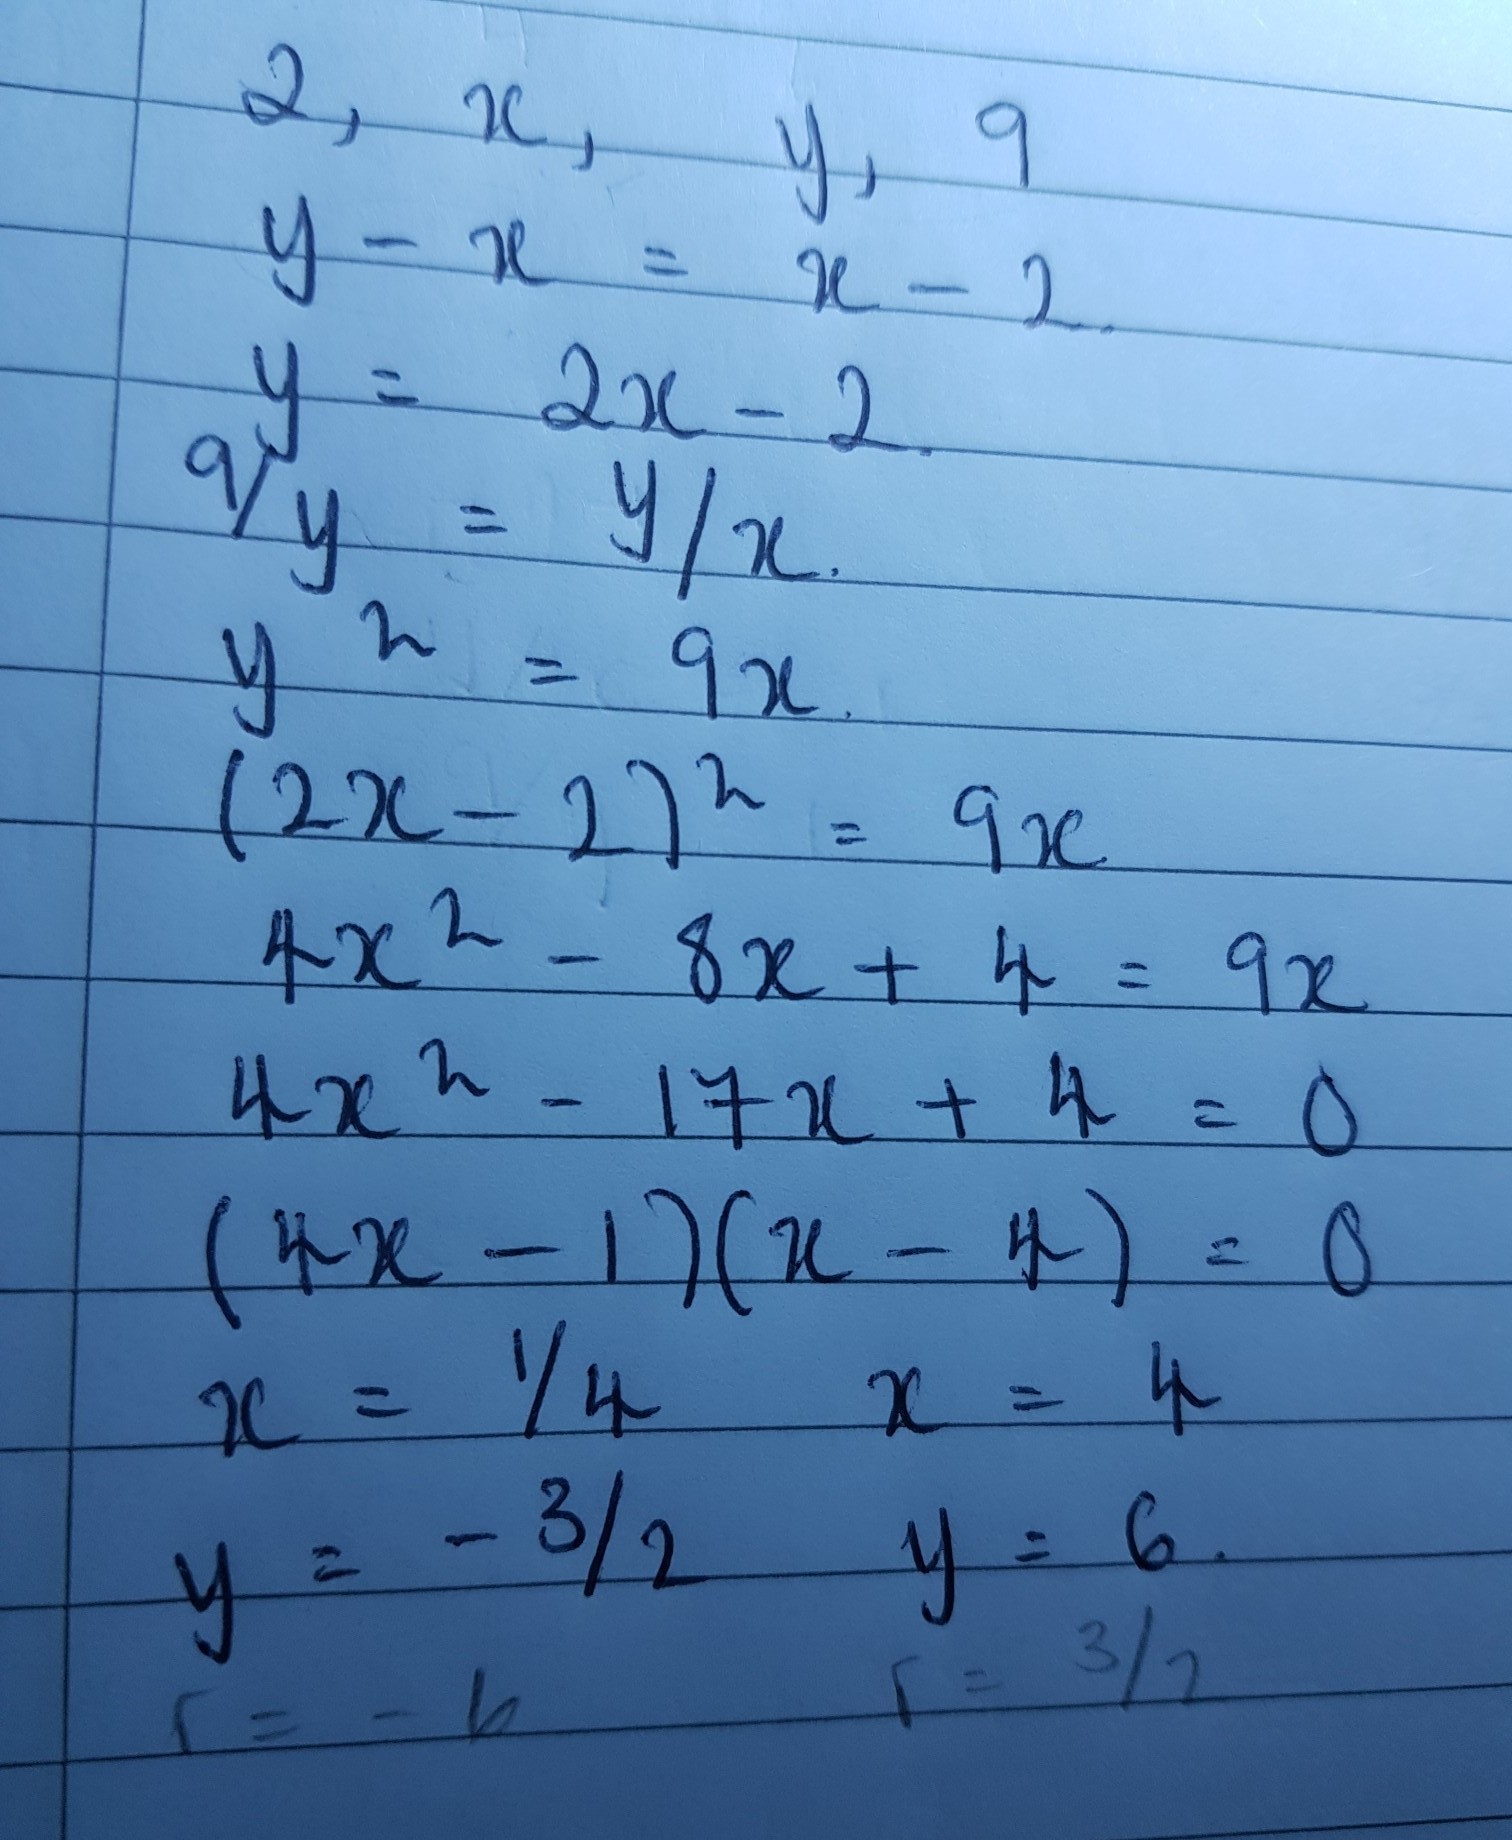 2, x, y, 9
y - x = x - 2.
y = 2x - 2.
9/y = y/x.
y² = 9x.
(2x - 2)² = 9x
4x² - 8x + 4 = 9x
4x² - 17x + 4 = 0
(4x - 1)(x - 4) = 0
x = 1/4 x = 4
y = - 3/2 y = 6.
r = - 6 r = 3/2